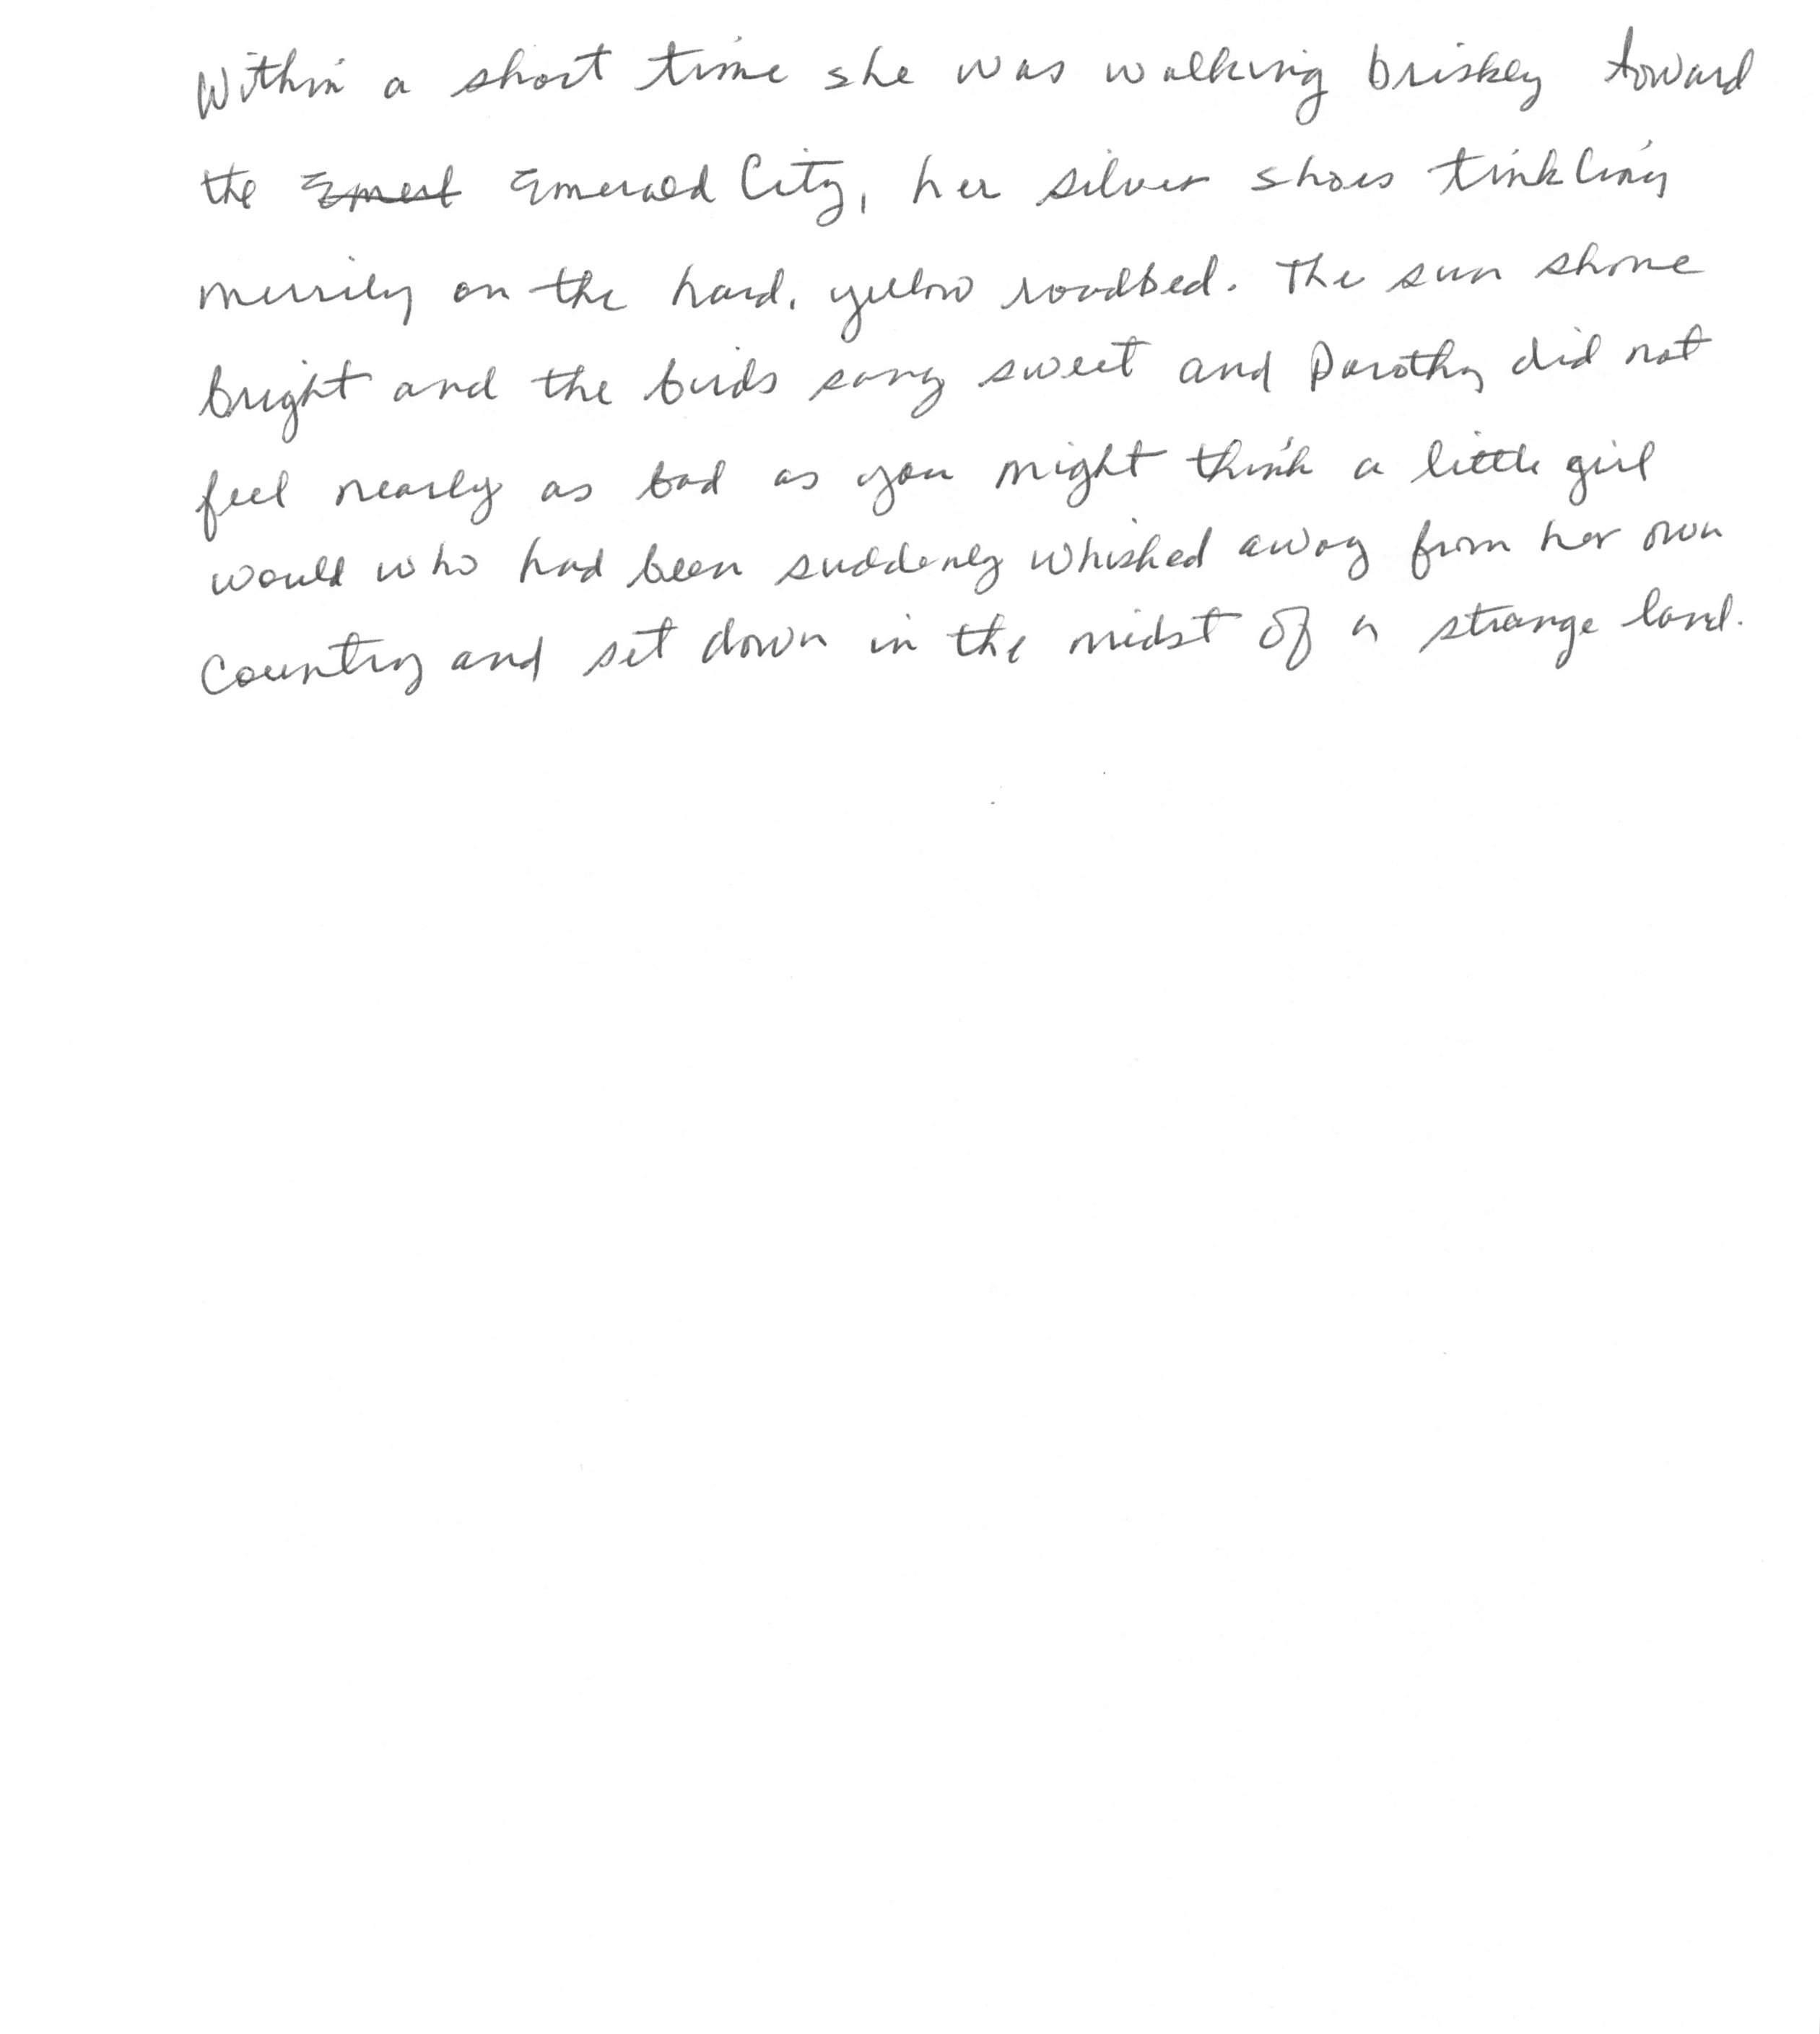 Within a short time she was walking briskly toward
the Emerald City, her silver shoes tinkling
merrily on the hard, yellow roadbed. The sun shone
bright and the birds sang sweet and Dorothy did not
feel nearly as bad as you might think a little girl
would who had been suddenly whished away from her own
country and set down in the midst of a strange land.